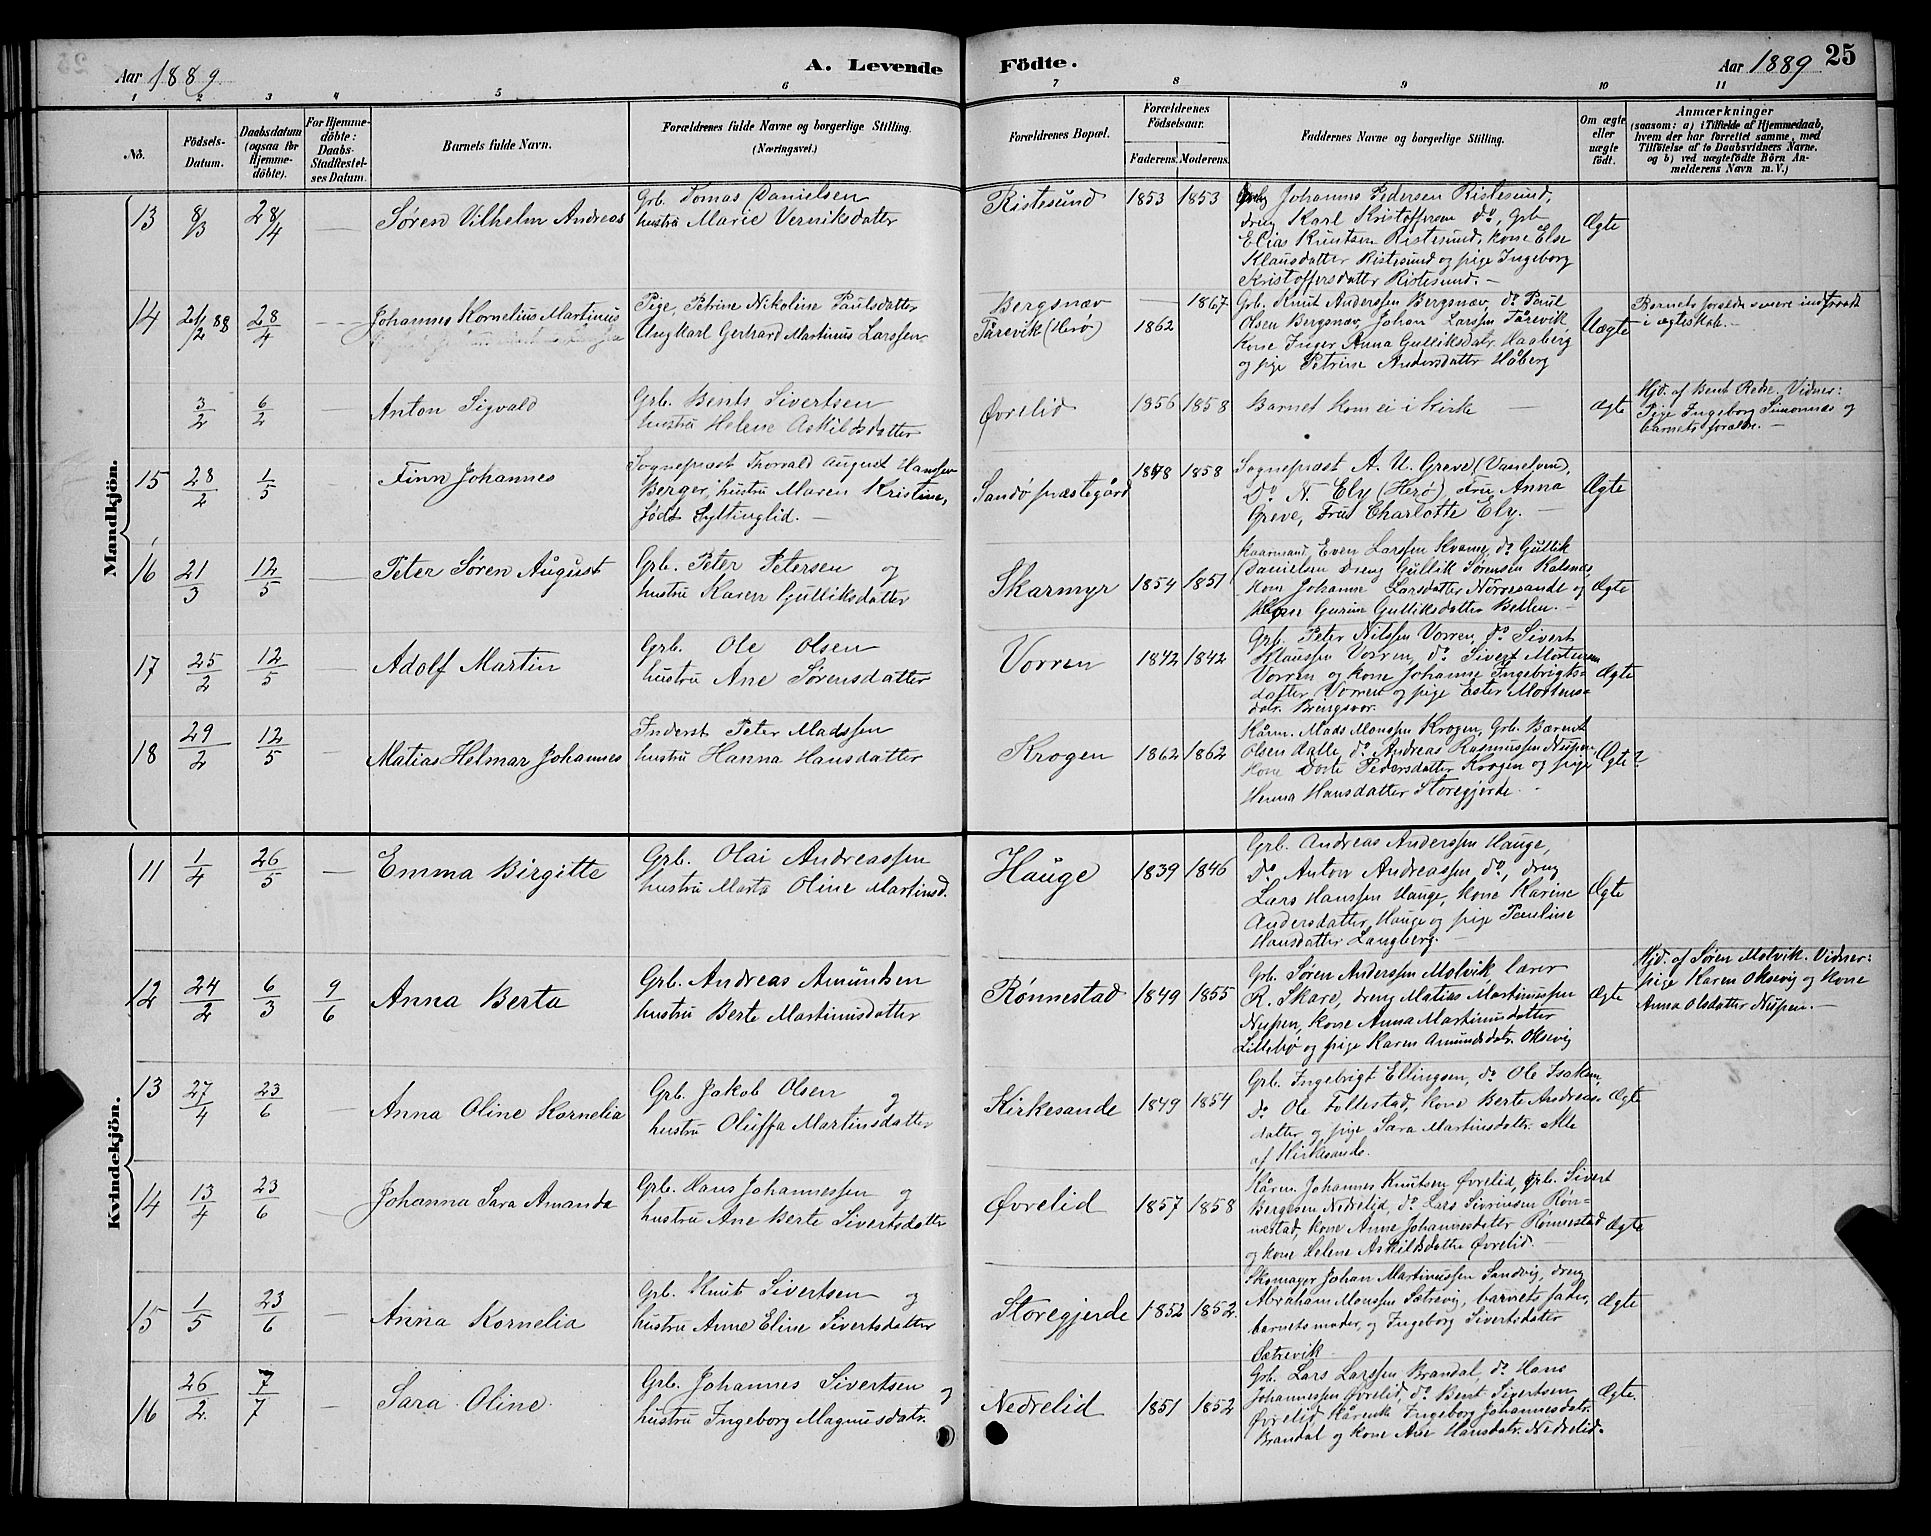 Aar 1889
A. Levende Födte.
Aar 1889
25
1 2 3 4 5 6 7 8 9 10 11
No.
Födsels-
Datum.
Daabsdatum
(ogsaa för
Hjemme-
döbte).
For Hjemme-
döbte:
Daabs-
Stadfæstel-
ses Datum.
Barnets fulde Navn.
Forældrenes fulde Navne og borgerlige Stilling.
(Næringsvei.)
Forældrenes Bopæl.
Forældrenes
Födselsaar.
Faderens. Moderens.
Faddernes Navne og borgerlige Stilling.
Om ægte
eller
uægte
født.
Anmærkninger
(saasom: a) i Tilfælde af Hjemmedaab,
hvem der har forrettet samme, med
Tilföielse af to Daabsvidners Navne,
og b) ved uægtefödte Börn An-
melderens Navn m. V.)
Mandkjön.
13 8/3 28/4 — Søren Vilhelm Andreas
Grb. Tomas Danielsen
hustru Marie Verniksdatter
Ristesund 1853 1853
Johannes Pedersen Ristesund,
dreng Karl Kristoffersen do, Grb
Elias Knutsen Ristesund, kone Else
Klausdatter Ristesund og pige Ingeborg
Kristoffersdatter Ristesund. —
Ægte
14 21/2 88 28/4 — Johannes Kornelius Martinus
Pige, Petrine Nikoline Paulsdatter
Ungkarl Gerhard Martinus Larssen
Bergsnæv — 1867
Tarevik (Herø) 1862
Grb. Knut Anderssen Bergsnæv, do Paul
Olsen Bergsnæv, Johan Larssen Tårevik
Kone Inger Anna Gulliksdatr. Haaberg
og pige Petrine Andersdatter Håberg
Uægte
Barnets foreldre senere indtraadt
i ægteskab. —
3/2 6/2 Anton Sigvald
Grb. Bent Sivertsen
hustru Helene Askildsdatter
Øvrelid 1856 1858
Barnet kom ei i kirke —
Ægte
Hjd. af Bent Rødse. Vidner:
Pige Ingeborg Simonnes og
barnets forældre. —
15 28/2 1/5 Finn Johannes
Sogneprest Thorvald August Hanssen
Berger, hustru Maren Kristine,
født Syltinglid. —
Sandø præstegård 1848 1858
Sogneprest A. U. Greve (Vanelven),
Do N. Ely (Herø), Fru Anna
Greve, Frue Charlotte Ely. —
Ægte
16 21/3 12/5 — Peter Søren August
Grb. Peter Petersen og
hustru Karen Gulliksdatter
Skarmyr 1854 1851
Kaarmand Even Larssen Kvame, do Gullik
Danielsen Dreng Gullik Sørensen
kone Johanne Larsdatter Nørresande og
Kone Gurine Gulliksdatter
Ægte
17 25/2 12/5 — Adolf Martin
Grb. Ole Olsen
hustru Ane Sørensdatter
Vorren 1842 1842
Grb. Peter Nilssen Vorren, do Sivert
Klaussen Vorren, do Sivert Mortensen
Vorren og kone Johanne Ingebrigts-
datter Vorren og pige Ester Mortens-
datr. Bringsvor.
Ægte
18 29/2 12/5 — Matias Helmar Johannes
Inderst Peter Madssen
hustru Hanna Hansdatter
Krogen 1862 1862
Kårm. Mads Monssen Krogen, Grb. Bærent
Olsen Dalle, do Andreas Rasmussen Nupen
Kone Dorte Pedersdatter Krogen og pige
Henna Hansdatter Storegjerde. —
Ægte?
Kvindekjön.
11 1/4 26/5 — Emma Birgitte
Grb. Olai Andreassen
hustru Marta Oline Martinsd.
Hauge 1839 1846
Grb. Andreas Anderssen Hauge,
Do, Anton Andreassen, do, dreng
Lars Hanssen Hauge, kone Karine
Andersdatter Hauge og pige Pauline
Hansdatter Langberg. —
Ægte
12 24/2 6/3 9/6 Anna Berta
Grb. Andreas Amundsen
hustru Berte Martinusdatter
Rønnestad 1849 1855
Grb. Søren Anderssen Molvik lærer
R. Skare, dreng Matias Martinussen
Nupen, kone Anna Martinusdatter
Lillebø og pige Karen Amundsdatr. Oksevig
Ægte
Hjd. af Søren Molvik. Vidner:
pige Karen Oksevig og kone
Anna Olsdatter Nupen. —
13 27/4 23/6 — Anna Oline Kornelia
Grb. Jakob Olsen og
hustru Oluffa Martinsdatter
Kirkesande 1849 1854
Grb. Ingebrigt Ellingsen, do Ole Isaksen,
do Ole Follestad, kone Berte Andreas-
datter og pige Sara Martinsdatter. Alle
af Kirkesande.
Ægte
14 13/4 23/6 — Johanna Sara Amanda
Grb. Hans Johannessen og
hustru Ane Berte Sivertsdatter
Øvrelid 1857 1858
Kårm. Johannes Knutsen Øvrelid, grb. Sivert
Bergesen Nedrelid, do Lars Sivrinsen Røn-
nestad, kone Anne Johannesdatter Rønnestad
og kone Helene Askildsdatter Øvrelid. —
Ægte
15 1/5 23/6 — Anna Kornelia
Grb. Knut Sivertsen og
hustru Anne Eline Sivertsdatter
Storegjerde 1852 1852
Skomager Johan Martinussen Sandvig, dreng
Abraham Monssen Sætrevig, barnets fader,
barnets moder, og Ingeborg Sivertsdatter
Sætrevik
Ægte
16 26/2 7/7 — Sara Oline
Grb. Johannes Sivertsen og
hustru Ingeborg Magnusdatr.
Nedrelid 1851 1852
Grb. Lars Larssen Brandal, do Hans
Johannessen Øvrelid, do Bent Sivertsen
Øvrelid Kårenke Ingeborg Johannesdatr.
Brandal og kone Ane Hansdatr. Nedrelid.
Ægte